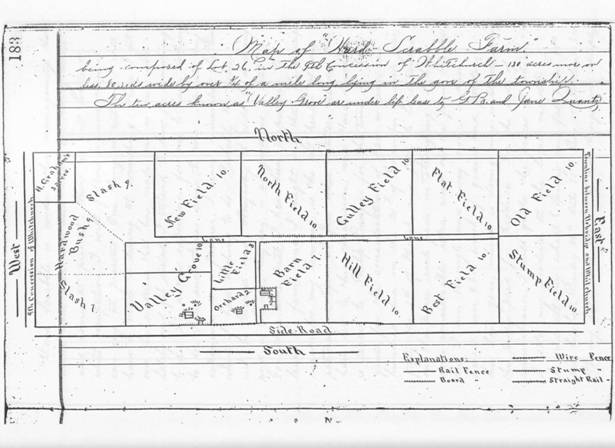 183
Map of "Hard Scrabble Farm"
being composed of Lot 26, in the 9th Concession of Whitchurch – 130 acres more or
less, 80 rods wide by over ¾ of a mile long lying in the gore of the township.
The ten acres known as "Valley Grove" are under life lease to G.B. and Jane Quantz
North
West
9th Concession of Whitchurch
East
Townline between Uxbridge and Whitchurch
Slash 9.
Hardwood Bush 8
Slash 7
New Field. 10.
North Field 10
Gulley Field 10.
Flat Field, 10.
Old Field. 10.
Lane
Lane
Valley Grove 10
Little Field 3
Orchard 2
Barn Field 7.
Hill Field 10.
Best Field 10.
Stump Field 10
Side Road
South
Explanations:
Rail Fence
Board "
Wire Fence
Stump "
Straight Rail "